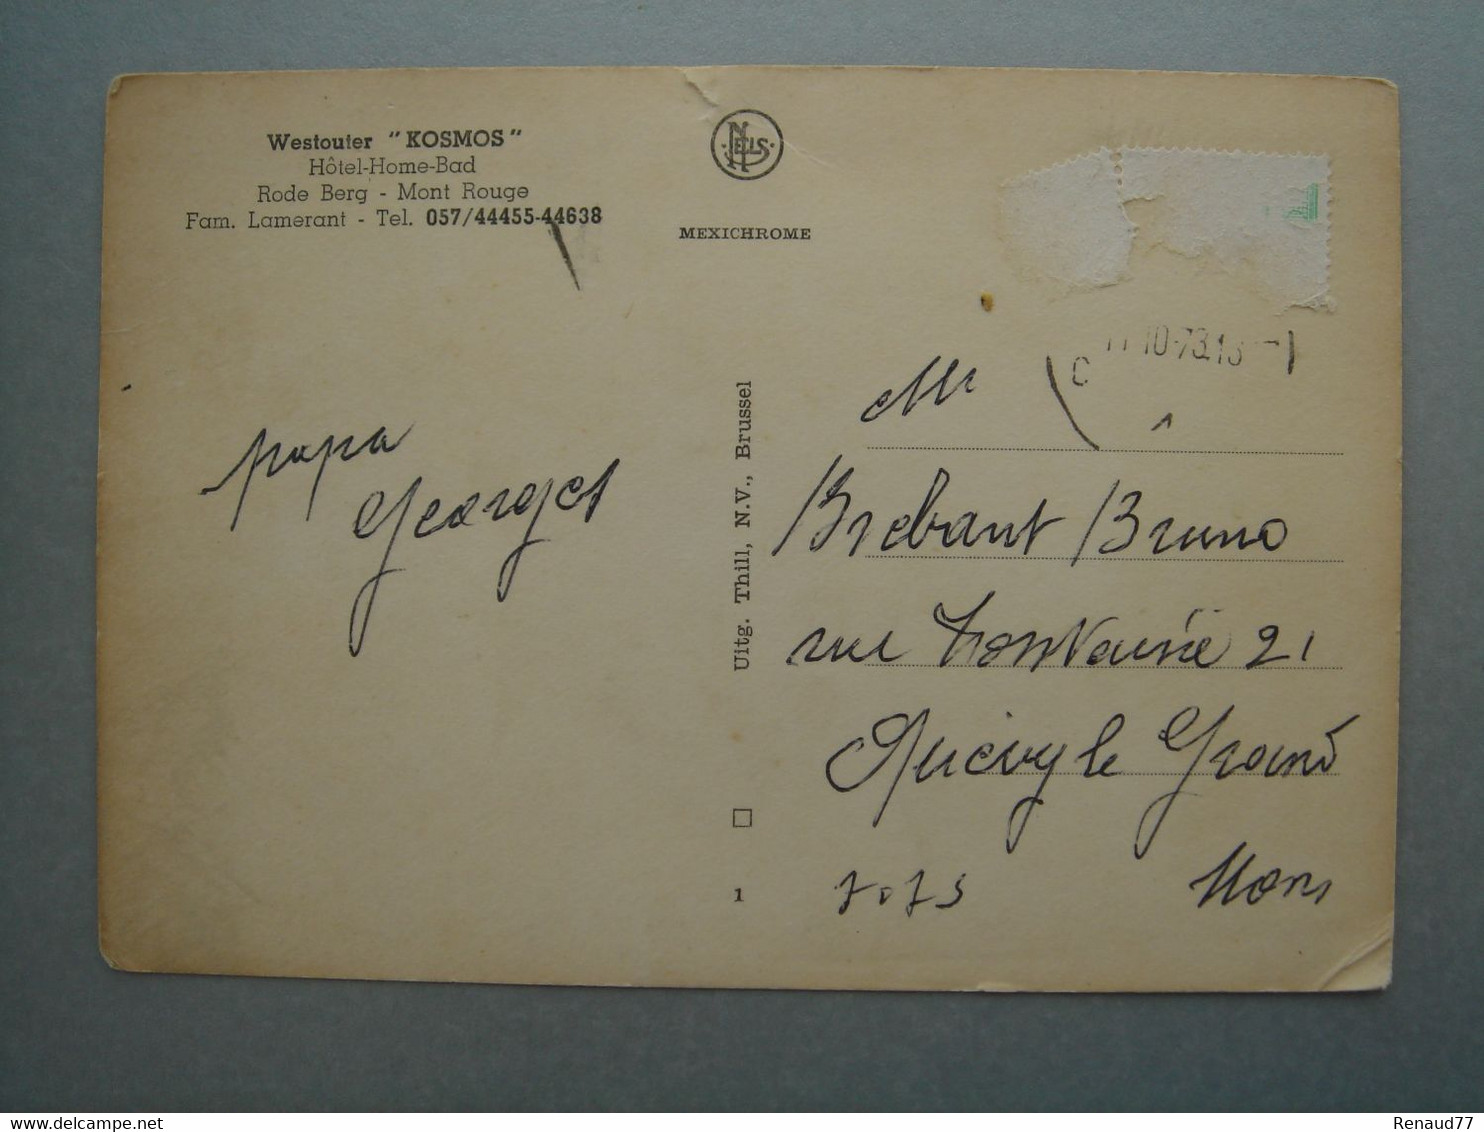 Westouter "KOSMOS"
Hôtel-Home-Bad
Rode Berg - Mont Rouge
Fam. Lamerant - Tel. 057/44455-44638
NELS
MEXICHROME
10-73.13
C
papa
Georges
Uitg. Thill, N.V., Brussel
1
Mr
Brebant Bruno
rue 21
Quévy le Grand
7073 Mons
delcampe.net
Renaud77